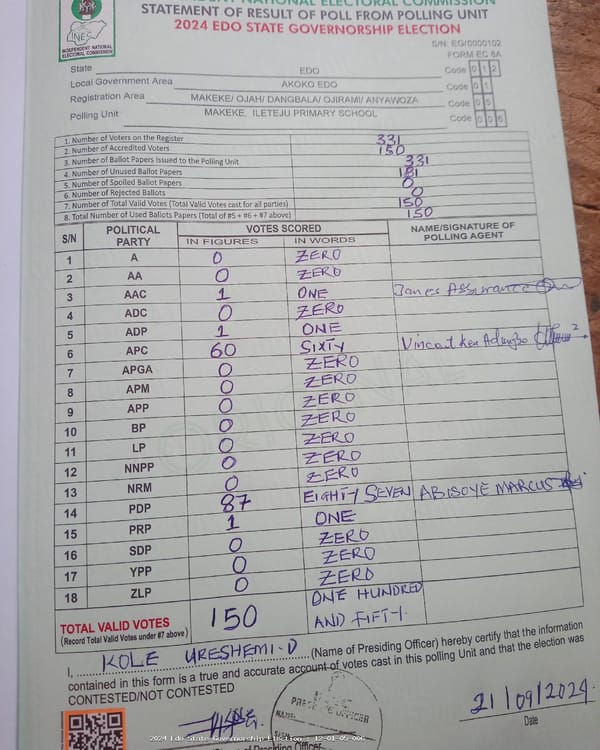 INDEPENDENT NATIONAL ELECTORAL COMMISSION
STATEMENT OF RESULT OF POLL FROM POLLING UNIT
2024 EDO STATE GOVERNORSHIP ELECTION
INEC
INDEPENDENT NATIONAL
ELECTORAL COMMISSION
S/N: EG/0000102
FORM EC 8A
State EDO Code 0 1 2
Local Government Area AKOKO EDO Code 0 1
Registration Area MAKEKE/ OJAH/ DANGBALA/ OJIRAMI/ ANYAWOZA Code 0 5
Polling Unit MAKEKE, ILETEJU PRIMARY SCHOOL Code 0 0 6
1. Number of Voters on the Register 331
2. Number of Accredited Voters 150
3. Number of Ballot Papers Issued to the Polling Unit 331
4. Number of Unused Ballot Papers 181
5. Number of Spoiled Ballot Papers 0
6. Number of Rejected Ballots 0
7. Number of Total Valid Votes (Total Valid Votes cast for all parties) 150
8. Total Number of Used Ballots Papers (Total of #5 + #6 + #7 above) 150
S/N POLITICAL PARTY VOTES SCORED NAME/SIGNATURE OF POLLING AGENT
IN FIGURES IN WORDS
1 A 0 ZERO
2 AA 0 ZERO
3 AAC 1 ONE James Assurance
4 ADC 0 ZERO
5 ADP 1 ONE
6 APC 60 SIXTY Vincent Ken
7 APGA 0 ZERO
8 APM 0 ZERO
9 APP 0 ZERO
10 BP 0 ZERO
11 LP 0 ZERO
12 NNPP 0 ZERO
13 NRM 0 ZERO
14 PDP 87 EIGHTY SEVEN ABISOYE MARCUS
15 PRP 1 ONE
16 SDP 0 ZERO
17 YPP 0 ZERO
18 ZLP 0 ZERO
TOTAL VALID VOTES 150 ONE HUNDRED
(Record Total Valid Votes under #7 above) AND FIFTY
I, KOLE URESHEMI.O (Name of Presiding Officer) hereby certify that the information
contained in this form is a true and accurate account of votes cast in this polling Unit and that the election was
CONTESTED/NOT CONTESTED
PRESIDING OFFICER
NAME:
SIGN
21/09/2024
Date
2024 Edo State Governorship Election : 12-01-05-006
of Presiding Officer